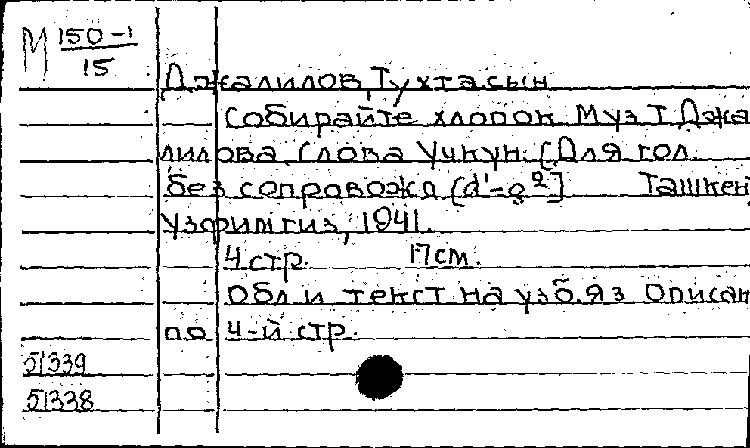 М 150-1
15
Джалилов, Тухтасын
Собирайте хлопок. Муз. Т. Джа
лилова. Слова Учкун. [Для гол.
без сопровожд. (d'-g²)] Ташкен
Узфимгиз, 1941.
4 стр. 17 см.
Обл. и текст на узб. яз. Описан
по 4-й стр.
51339
51338